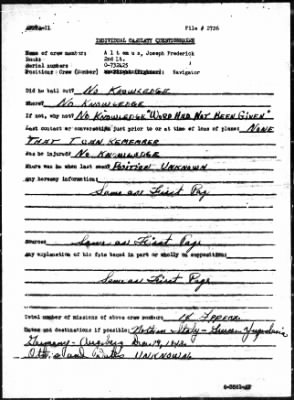 File # 2726
INDIVIDUAL CASUALTY QUESTIONNAIRE
Name of crew member: Altemus, Joseph Frederick
Rank: 2nd Lt.
Serial number: O-732425
Position: Crew (Bomber) Navigator
Did he bail out? NO KNOWLEDGE
Where? NO KNOWLEDGE
If not, why not? NO KNOWLEDGE "WORD HAD NOT BEEN GIVEN"
Last contact or conversation just prior to or at time of loss of plane: NONE
THAT I CAN REMEMBER
Was he injured? NO KNOWLEDGE
Where was he when last seen? POSITION UNKNOWN
Any hearsay information:
Same as First Pag
Source: Same as First Page
Any explanation of his fate based in part or wholly on supposition:
Same as First Page
Total number of missions of above crew member: 18 I
Dates and destinations if possible: Northern Italy - Greece - Yugoslavia
Germany - Augsburg Dec. 19, 1943.
UNKNOWN